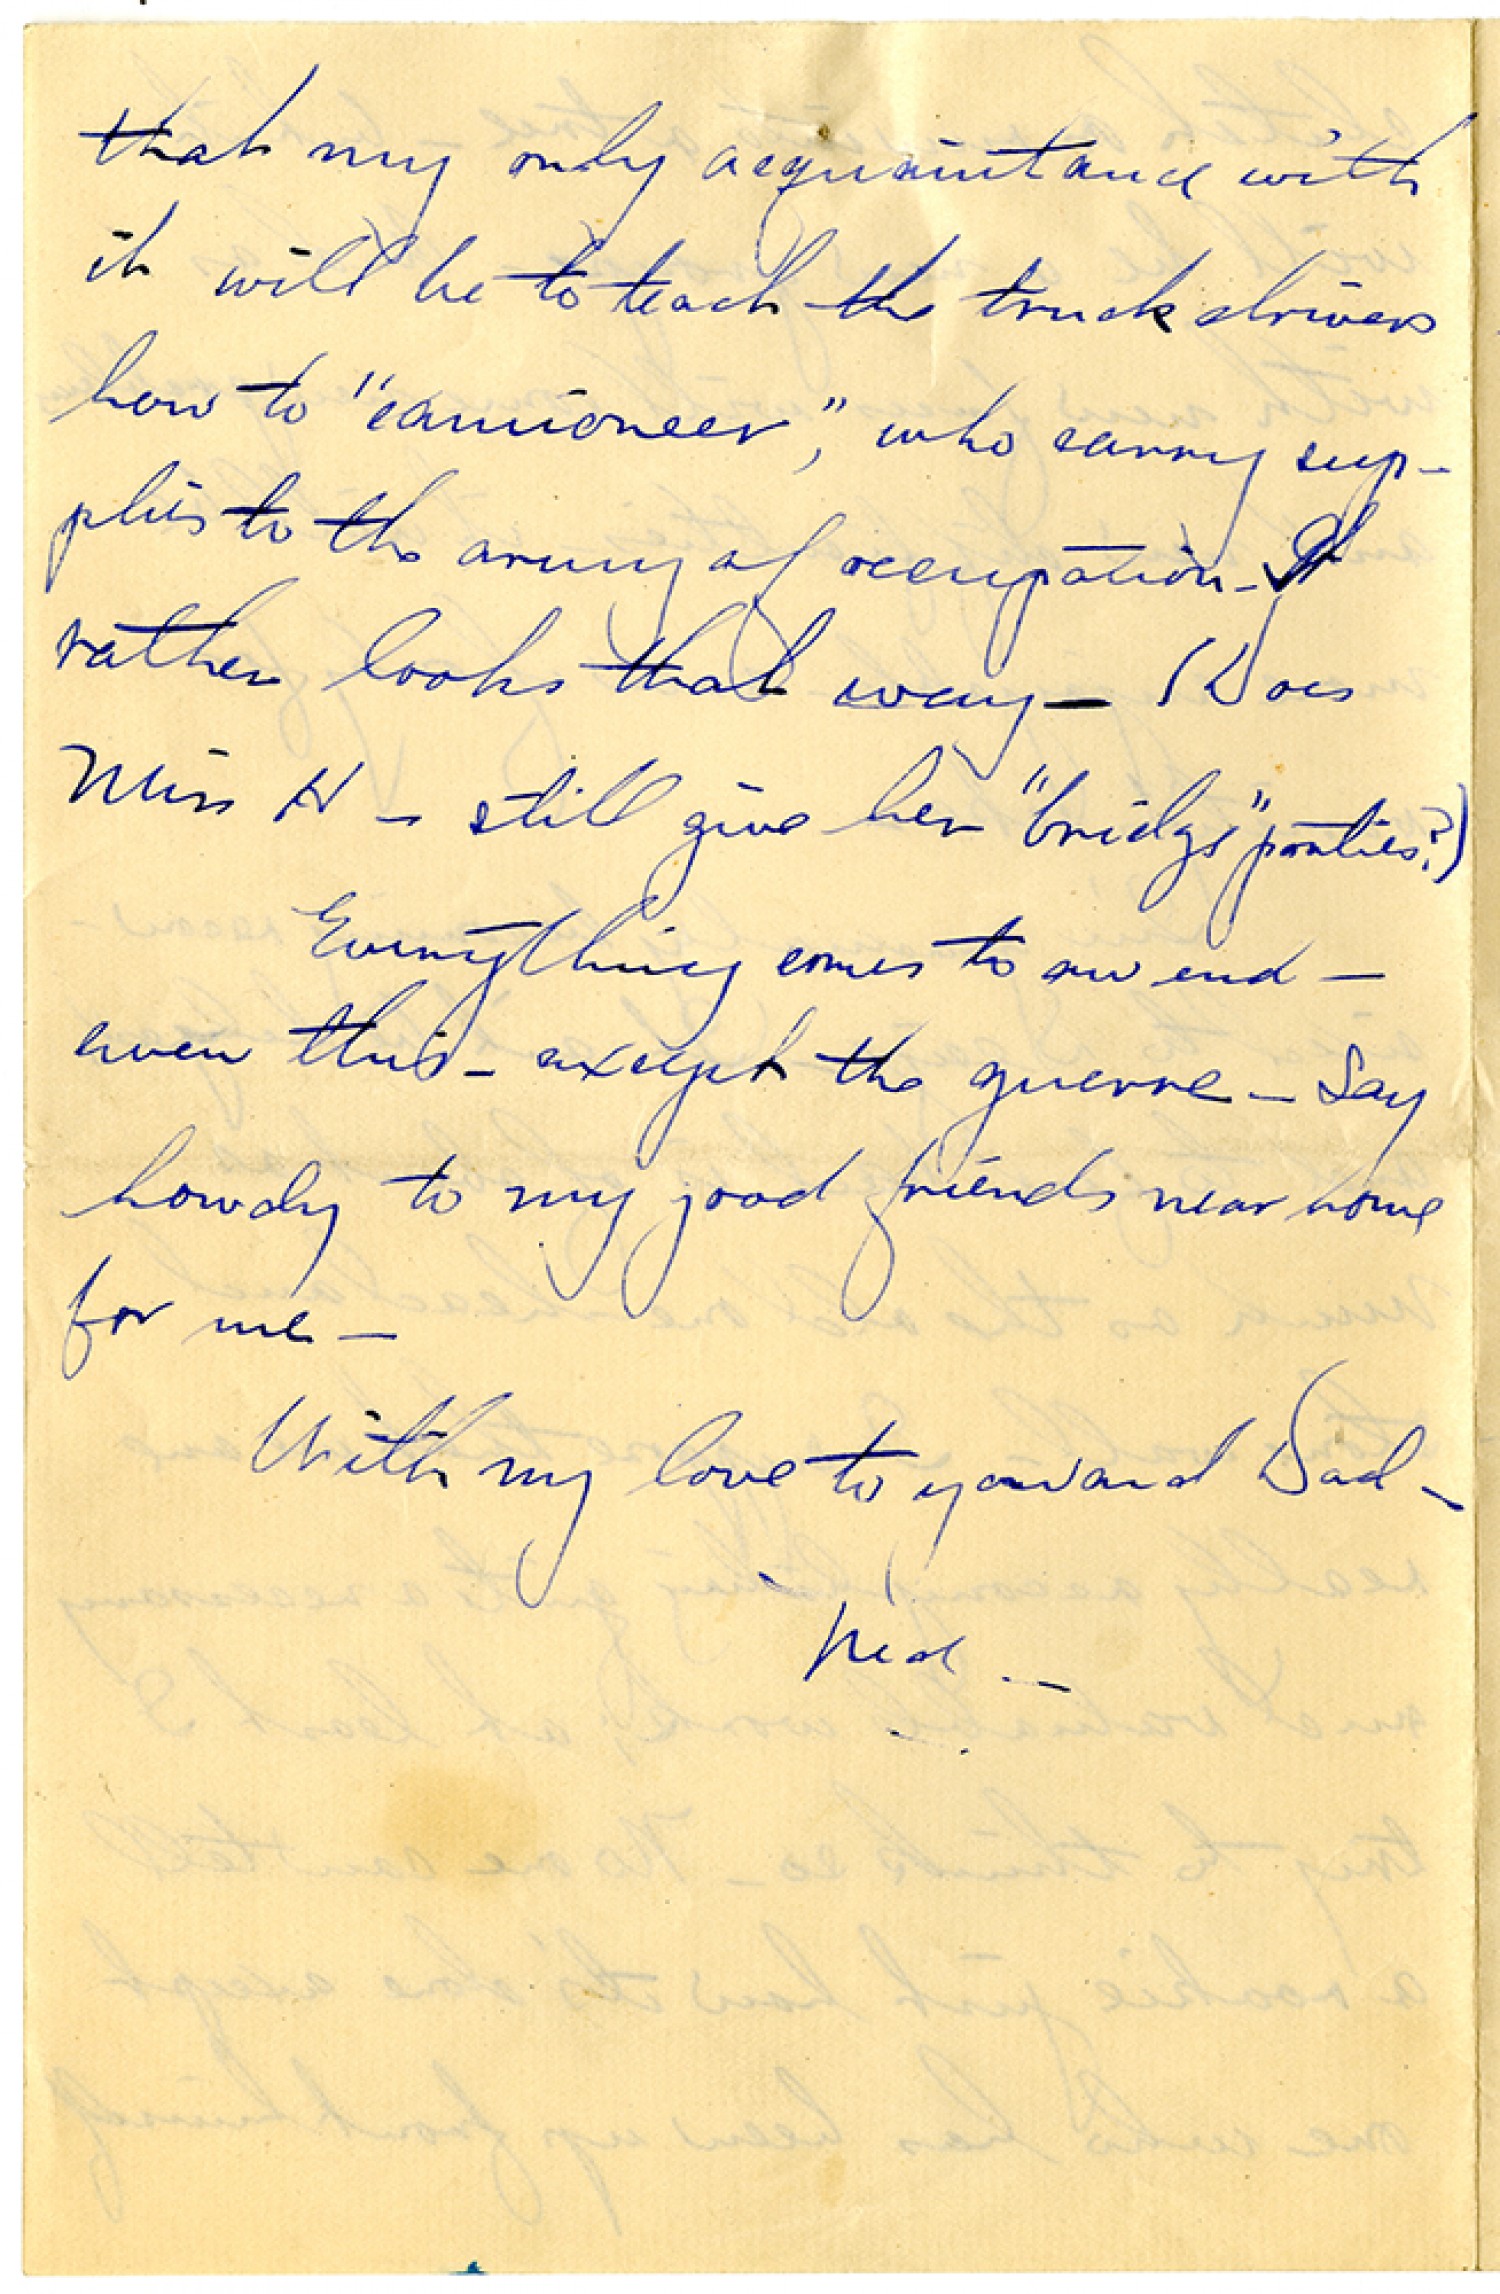 that my only acquaintance with
it will be to teach the truck drivers
how to "camioneer", who carry sup-
plies to the army of occupation - It
rather looks that way - (Does
Miss H - still give her "bridge" parties?)
Everything comes to an end -
even this - except the guerre - Say
howdy to my good friends near home
for me -
With my love to you and Dad -
Ned -